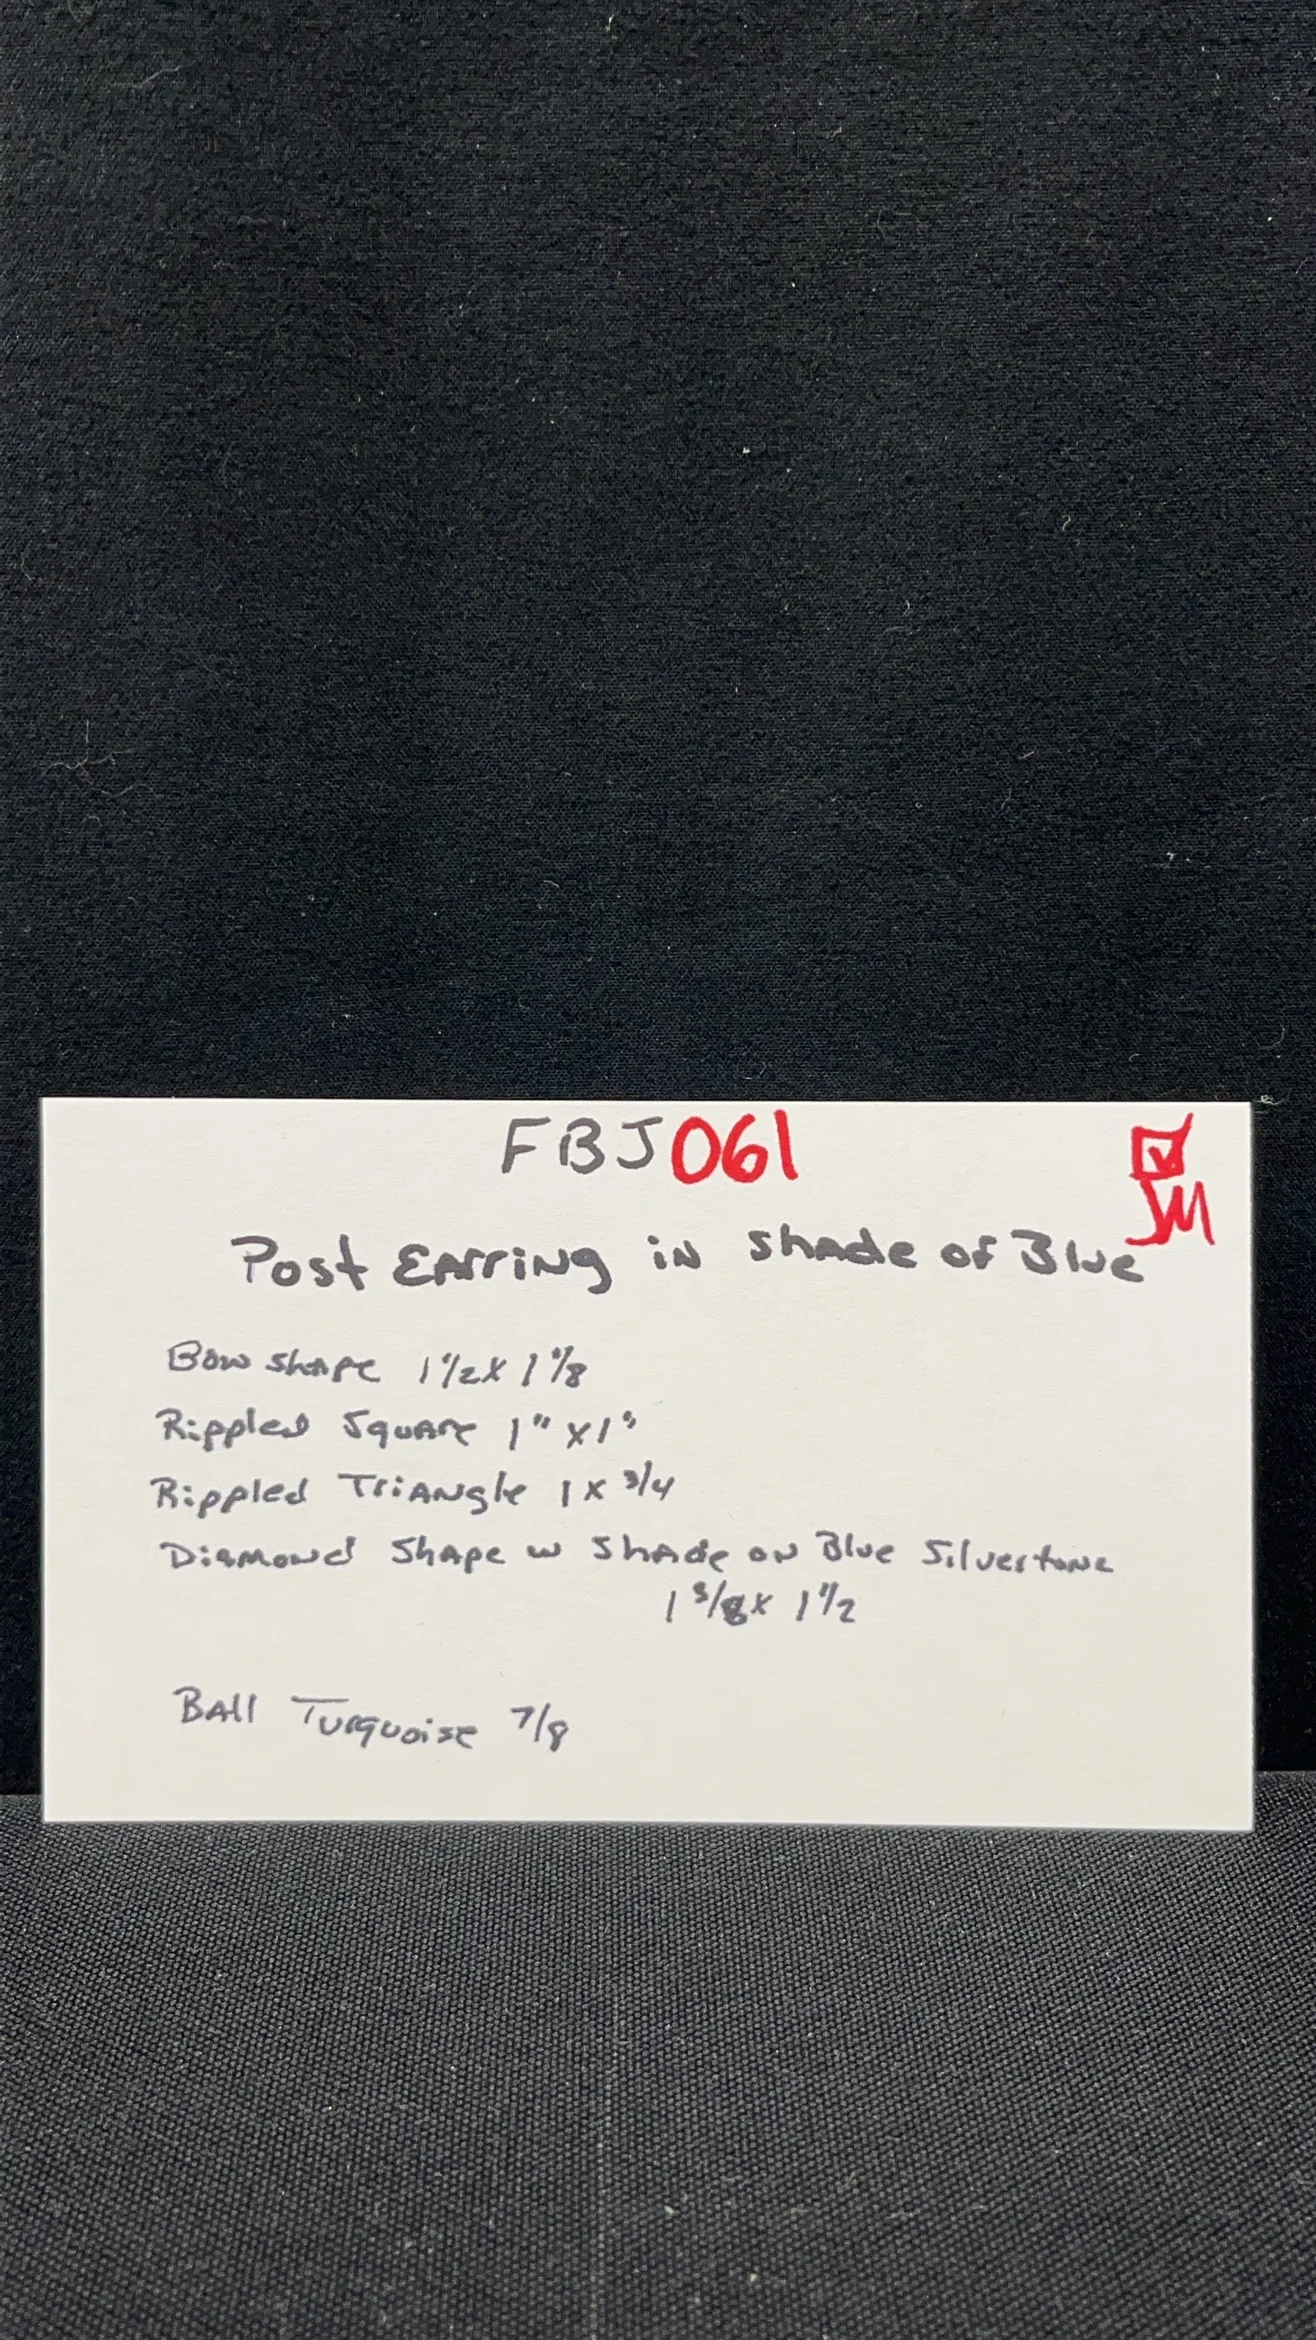 FBJ061
JM
Post Earring in Shade of Blue
Bow shape 1 1/2 x 1 1/8
Rippled Square 1" x 1"
Rippled Triangle 1 x 3/4
Diamond Shape w Shade on Blue Silvertone
1 3/8 x 1 1/2
Ball Turquoise 7/8